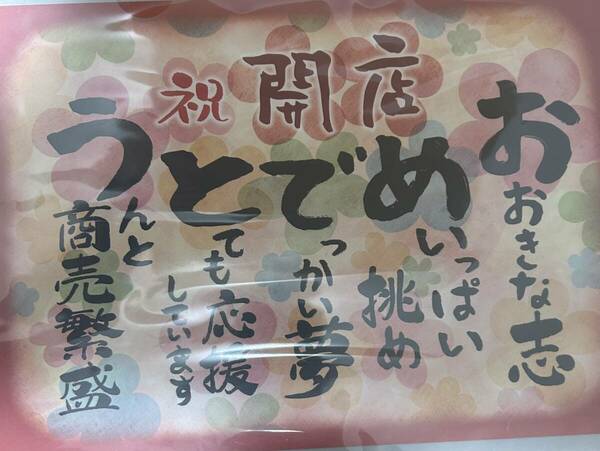 祝 開店
おおきな志
めいっぱい挑め
でっかい夢
とても応援
しています
うんと商売繁盛